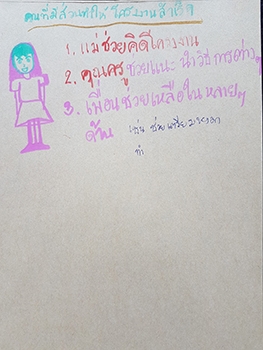 คนที่มีส่วนทำให้ โครงงานสำเร็จ
1. แม่ช่วยคิดโครงงาน
2. คุณครูช่วยแนะนำวิธีการต่างๆ
3. เพื่อนช่วยเหลือในหลายๆ
ด้าน เช่น ช่วยเตรียม
ทำ